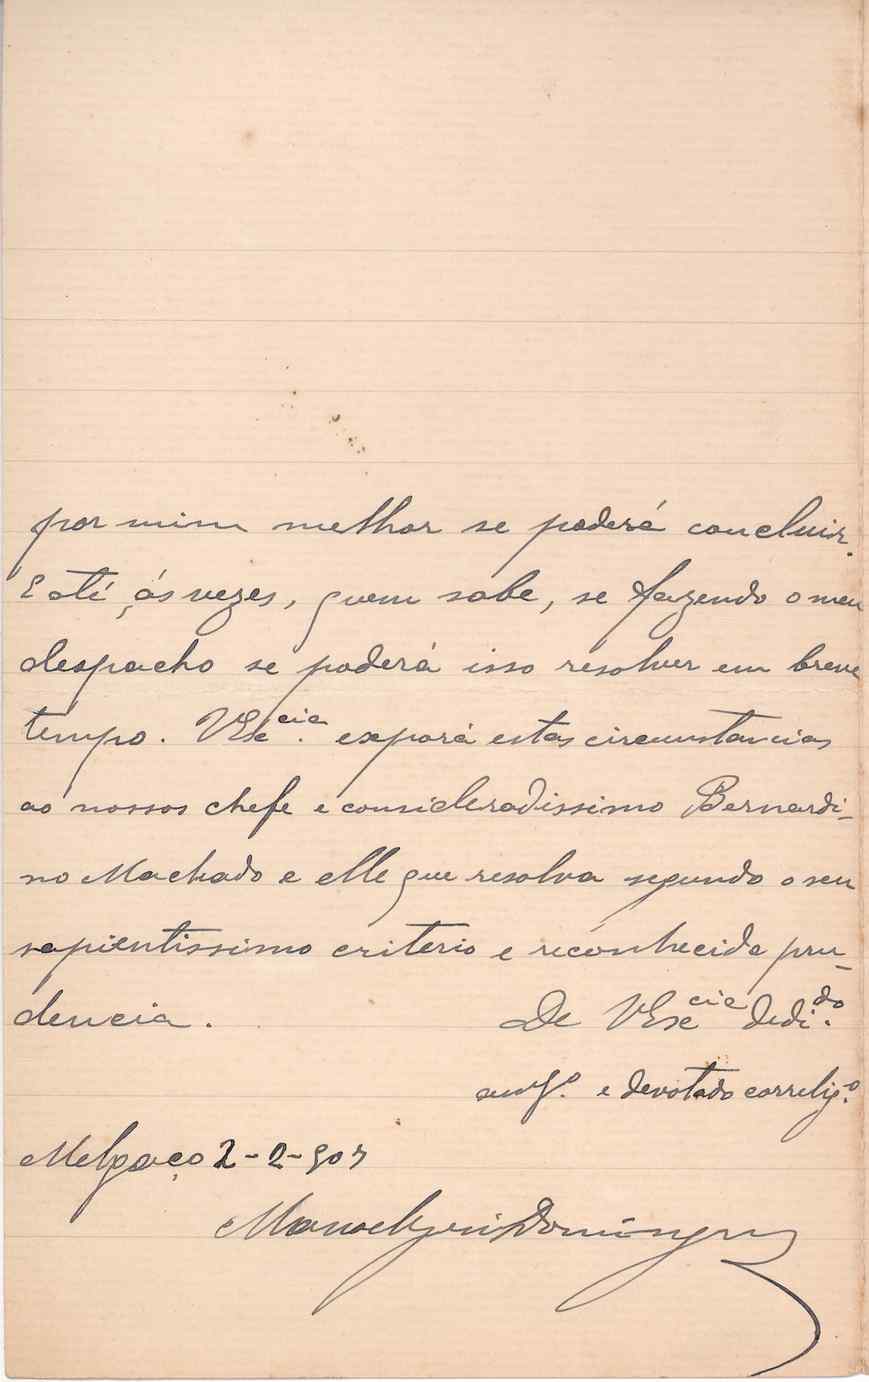 por mim melhor se poderá concluir.
E até, ás vezes, quem sabe, se fazendo o meu
despacho se poderá isso resolver em breve
tempo. VExcia. exporá estas circumstancias
ao nossos chefe e consideradissimo Bernardi-
no Machado e elle que resolva segundo o seu
sapientissimo criterio e reconhecida pru-
dencia.
De VExcia dedi.do
amg.o e devotado correlig.o
Melgaço 2-2-907
Manoel José Domingues